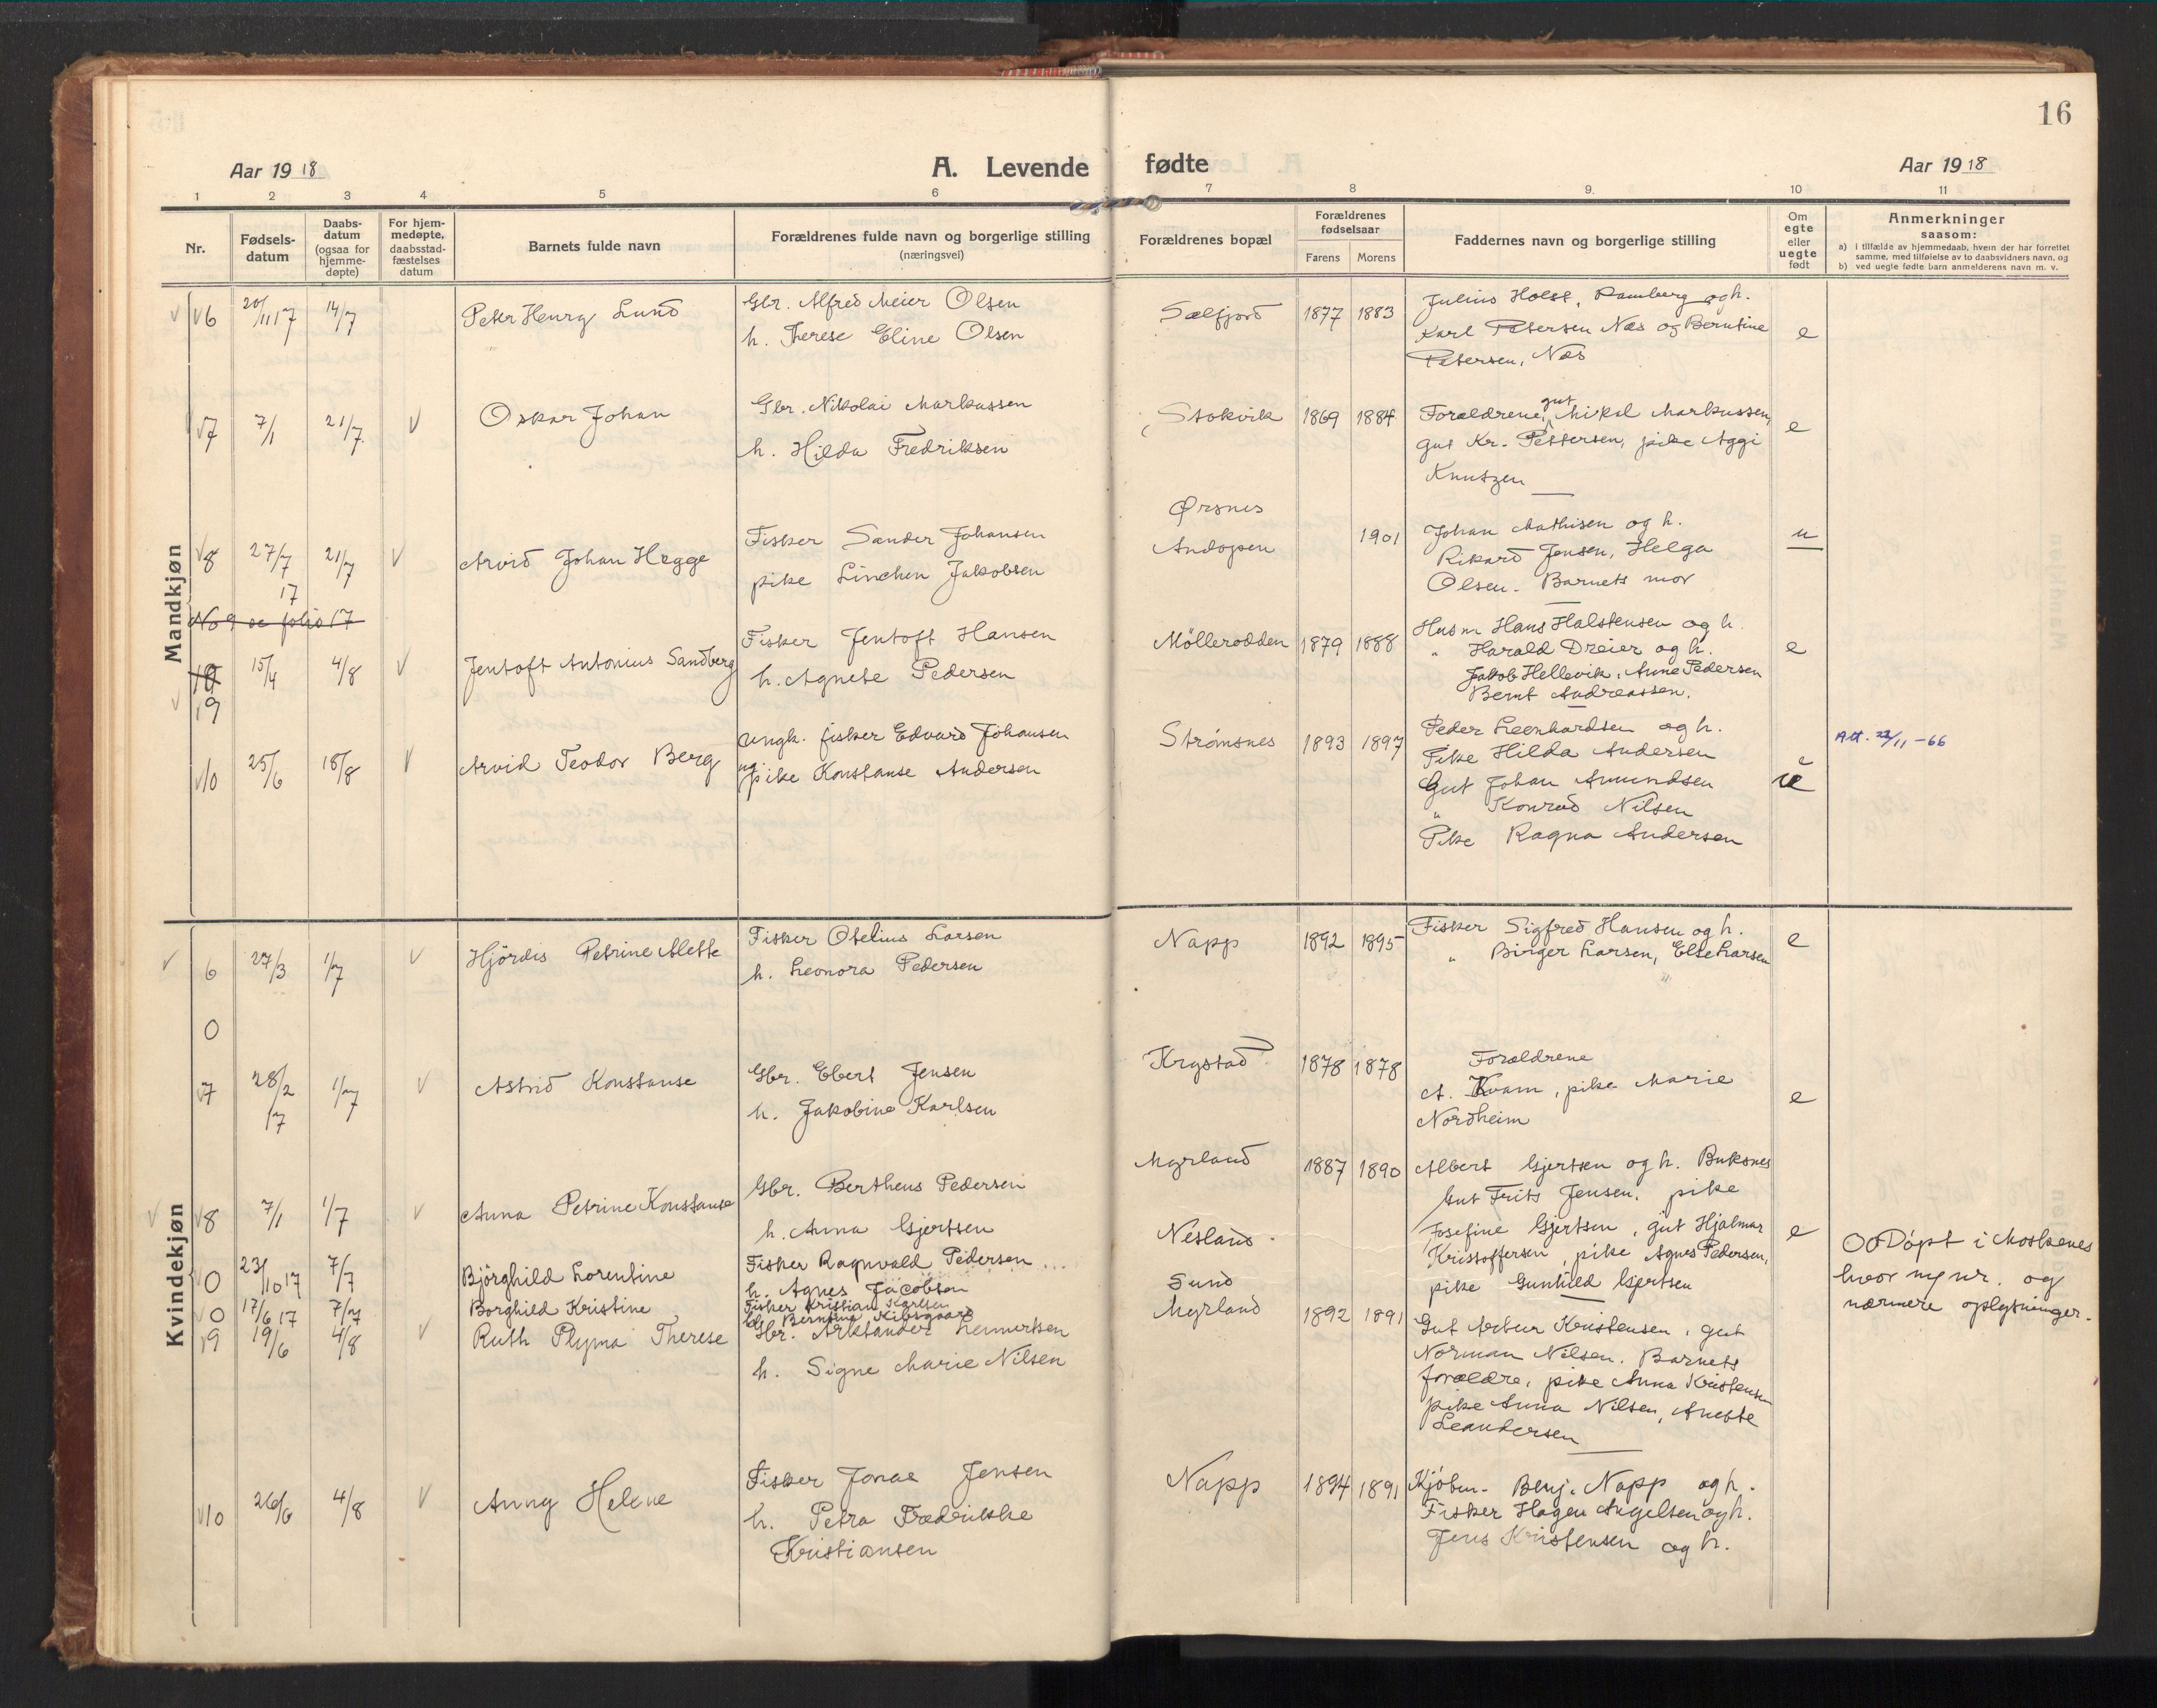 16
Aar 1918 A. Levende fødte Aar 1918
1 2 3 4 5 6 7 8 9. 10 11
Nr. Fødsels-datum Daabs-datum (ogsaa for hjemme-døpte) For hjem-medøpte, daabsstad-fæstelses datum Barnets fulde navn Forældrenes fulde navn og borgerlige stilling (næringsvei) Forældrenes bopæl Forældrenes fødselsaar Farens Morens Faddernes navn og borgerlige stilling Om egte eller uegte født Anmerkninger saasom:
a) i tilfælde av hjemmedaab, hvem der har forrettet samme, med tilføielse av to daabsvidners navn, og
b) ved uegte fødte barn anmelderens navn m. v.
Mandkjøn
6 20/11 17 14/7 Peter Henry Lund Gbr. Alfred Meier Olsen Selfjord 1877 1883 Julius Holst, Ramberg og h.
h. Therese Eline Olsen Karl Petersen Næs og Berntine e
Petersen, Næs
7 7/1 21/7 V Oskar Johan Gbr. Nikolai Markussen Stokvik 1869 1884 Forældrene, gut Mikal Markussen, e
h. Hilda Fredriksen gut Kr. Pettersen, pike Aggi
Knutzen
Ørsnes
8 27/7 17 21/7 V Arvid Johan Hegge Fisker Sander Johansen Andopen 1901 Johan Mathisen og h. u
pike Linchen Jakobsen Rikard Jensen, Helga
Olsen. Barnets mor
No 9 se folio 17
Fisker Jentoft Hansen Møllerodden 1879 1888 Husm Hans Halstensen og h.
10 9 15/4 4/8 V Jentoft Antonius Sandberg h. Agnete Pedersen " Harald Dreier og h. e
Jakob Hellevik, Anne Pedersen
Bernt Andreassen.
10 25/6 18/8 V Arvid Teodor Berg Ungk. fisker Edvard Johansen Strømsnes 1893 1897 Peder Leonhardsen og h. Att. 22/11-66
og pike Konstanse Andersen Pike Hilda Andersen
Gut Johan Amundsen
" Konrad Nilsen
Pike Ragna Andersen
Kvindekjøn
6 27/3 1/7 V Hjördis Petrine Mette Fisker Otelius Larsen Napp 1892 1895 Fisker Sigfred Hansen og h. e
h. Leonora Pedersen " Birger Larsen, Else Larsen
0
7 28/2 17 1/7 V Astrid Konstanse Gbr. Ebert Jensen Krystad 1878 1878 Forældrene
h. Jakobine Karlsen A. Kvam, pike Marie e
Nordheim
8 7/1 1/7 V Anna Petrine Konstanse Gbr. Bertheus Pedersen Myrland 1887 1890 Albert Gjertsen og h. Buksnes
h. Anna Gjertsen Gut Frits Jensen. pike
Josefine Gjertsen, gut Hjalmar e
Kristoffersen, pike Agnes Pedersen,
pike Gunhild Gjertsen
0 23/10 17 7/7 Bjørghild Lorentine Fisker Ragnvald Pedersen Nesland OO Döpt i Moskenes
h. Agnes Jacobsen hvor nye nr. og
0 17/6 17 7/7 Borghild Kristine Fisker Kristian Karlsen Sund nærmere oplysninger.
h. Berntine Kilsgaard
9 19/6 4/8 V Ruth Plyma Therese Gbr. Arleander Lennertsen Myrland 1892 1891 Gut Artur Kristensen, gut
h. Signe Marie Nilsen Norman Nilsen. Barnets
forældre, pike Anna Kristensen
pike Anna Nilsen, Anette
Leandersen
10 26/6 4/8 V Anny Helene Fisker Jonas Jensen Napp 1894 1891 Kjöbm. Benj. Napp og h.
h. Petra Fredrikke Fisker Hagen Angelsen og h.
Kristiansen Jens Kristensen og h.